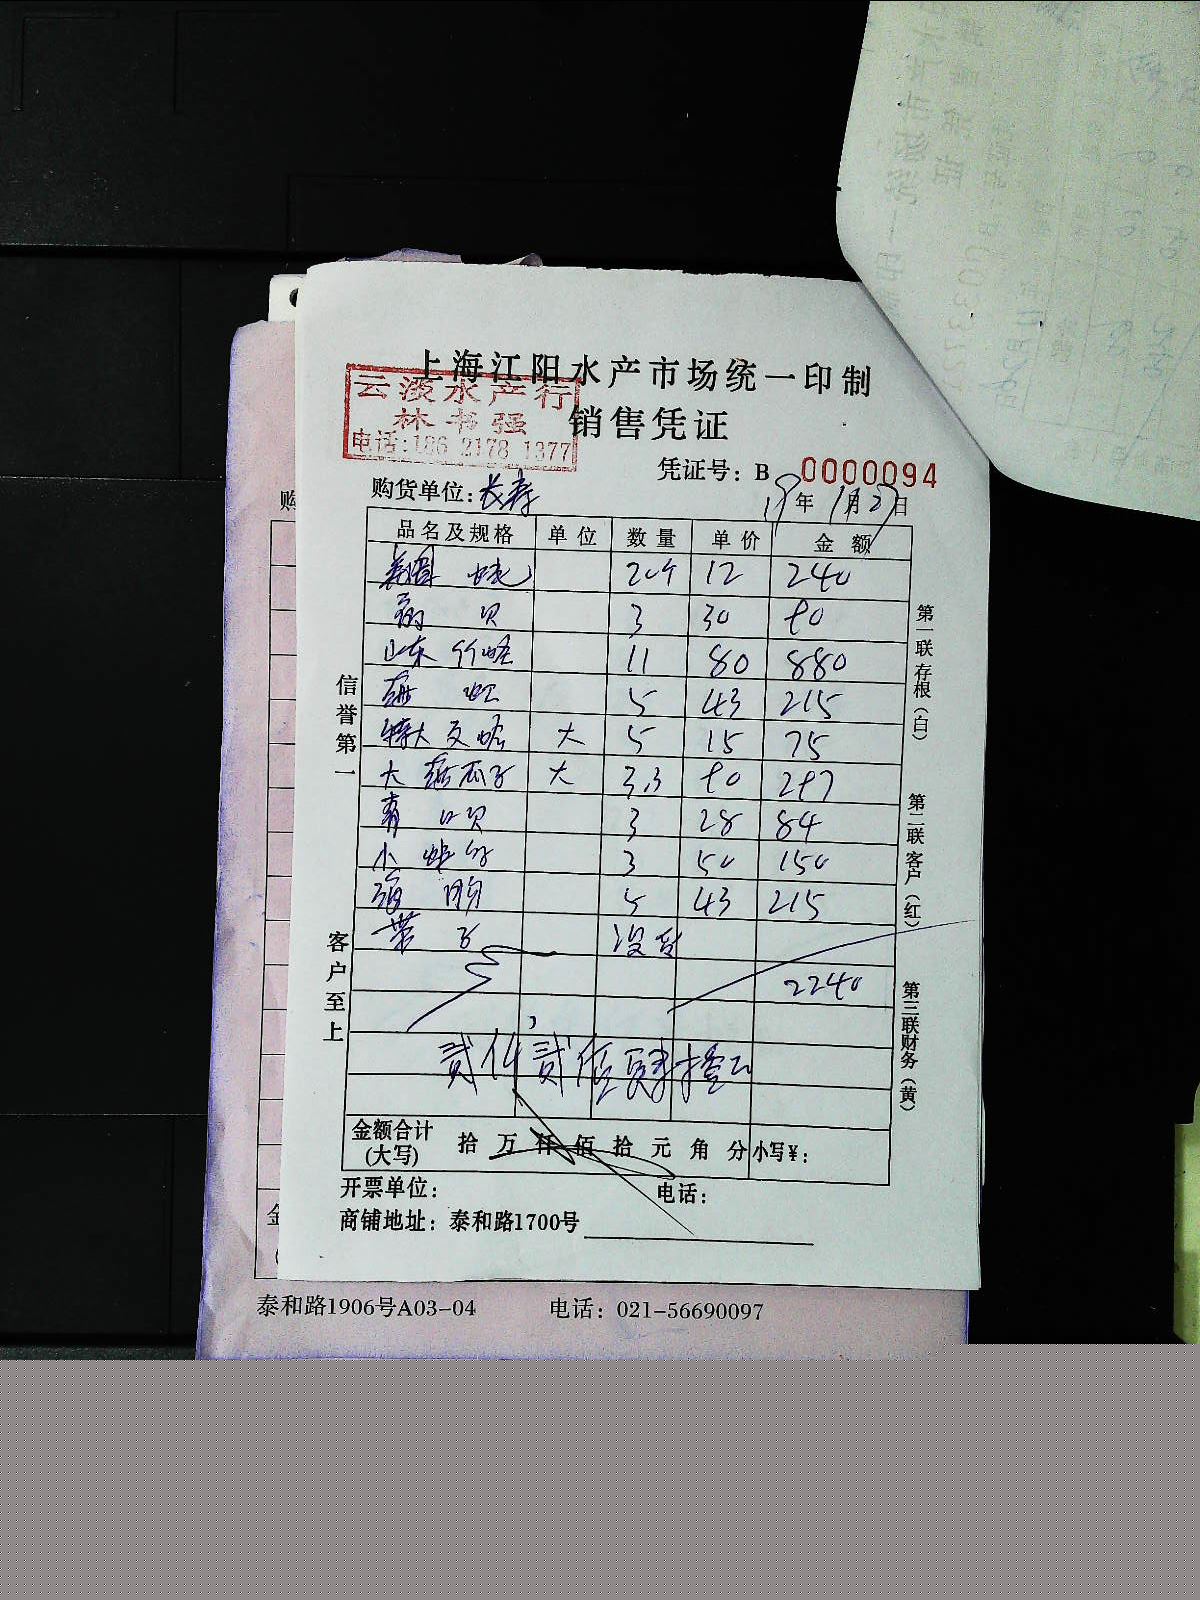 上海江阳水产市场统一印制
云淡水产行
林书强
电话:186 2178 1377
销售凭证
凭证号: B 0000094
购货单位: 长寿
19年 1月27日
品名及规格 单位 数量 单价 金额
20个 12 240
贝 3 30 90
山东竹蛏 11 80 880
5 43 215
特大文蛤 大 5 15 75
大 瓜子 大 3.3 90 297
青口贝 3 28 84
小 3 50 150
5 43 215
带子 没有
2240
贰仟贰佰肆拾元
金额合计(大写) 拾 万 仟 佰 拾 元 角 分 小写¥:
开票单位: 电话:
商铺地址: 泰和路1700号
信誉第一
客户至上
第一联存根(白)
第二联客户(红)
第三联财务(黄)
购
金
泰和路1906号A03-04 电话: 021-56690097